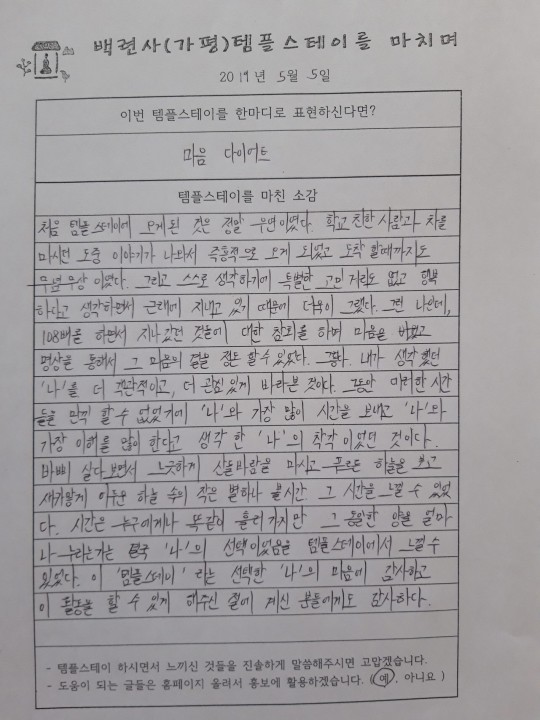 백련사(가평)템플스테이를 마치며
2019년 5월 5일
이번 템플스테이를 한마디로 표현하신다면?
마음 다이어트
템플스테이를 마친 소감
처음 템플 스테이에 오게 된 것은 정말 우연이었다. 학교 친한 사람과 차를
마시던 도중 이야기가 나와서 즉흥적으로 오게 되었고 도착 할때까지도
무념 무상 이었다. 그리고 스스로 생각하기에 특별한 고민 거리도 없고 행복
하다고 생각하면서 근래에 지내고 있기 때문에 더욱이 그랬다. 그런 나는데,
108배를 하면서 지나갔던 것들에 대한 참회를 하며 마음을 비웠고
명상을 통해서 그 마음의 결을 정돈 할 수 있었다. 그렇다. 내가 생각했던
'나'를 더 객관적이고, 더 관심있게 바라본 것이다. 그동안 마려한 시간
들을 만끽 할 수 없었기에 '나'와 가장 많이 시간을 보내고 '나'와
가장 이해를 많이 한다고 생각 한 '나'의 착각이었던 것이다.
바삐 살다보면서 느긋하게 산들바람을 마시고 푸르른 하늘을 보고
새까맣게 어두운 하늘 속의 작은 별하나 볼시간 그 시간을 느낄 수 있었
다. 시간은 누구에게나 똑같이 흘러 가지만 그 동일한 양을 얼마
나 누리는가는 결국 '나'의 선택이었음을 템플스테이에서 느낄 수
있었다. 이 '템플스테이' 라는 선택한 '나'의 마음에 감사하고
이 활동을 할 수 있게 해주신 절에 계신 분들에게도 감사하다.
- 템플스테이 하시면서 느끼신 것들을 진솔하게 말씀해주시면 고맙겠습니다.
- 도움이 되는 글들은 홈페이지 올려서 홍보에 활용하겠습니다. (예, 아니요)